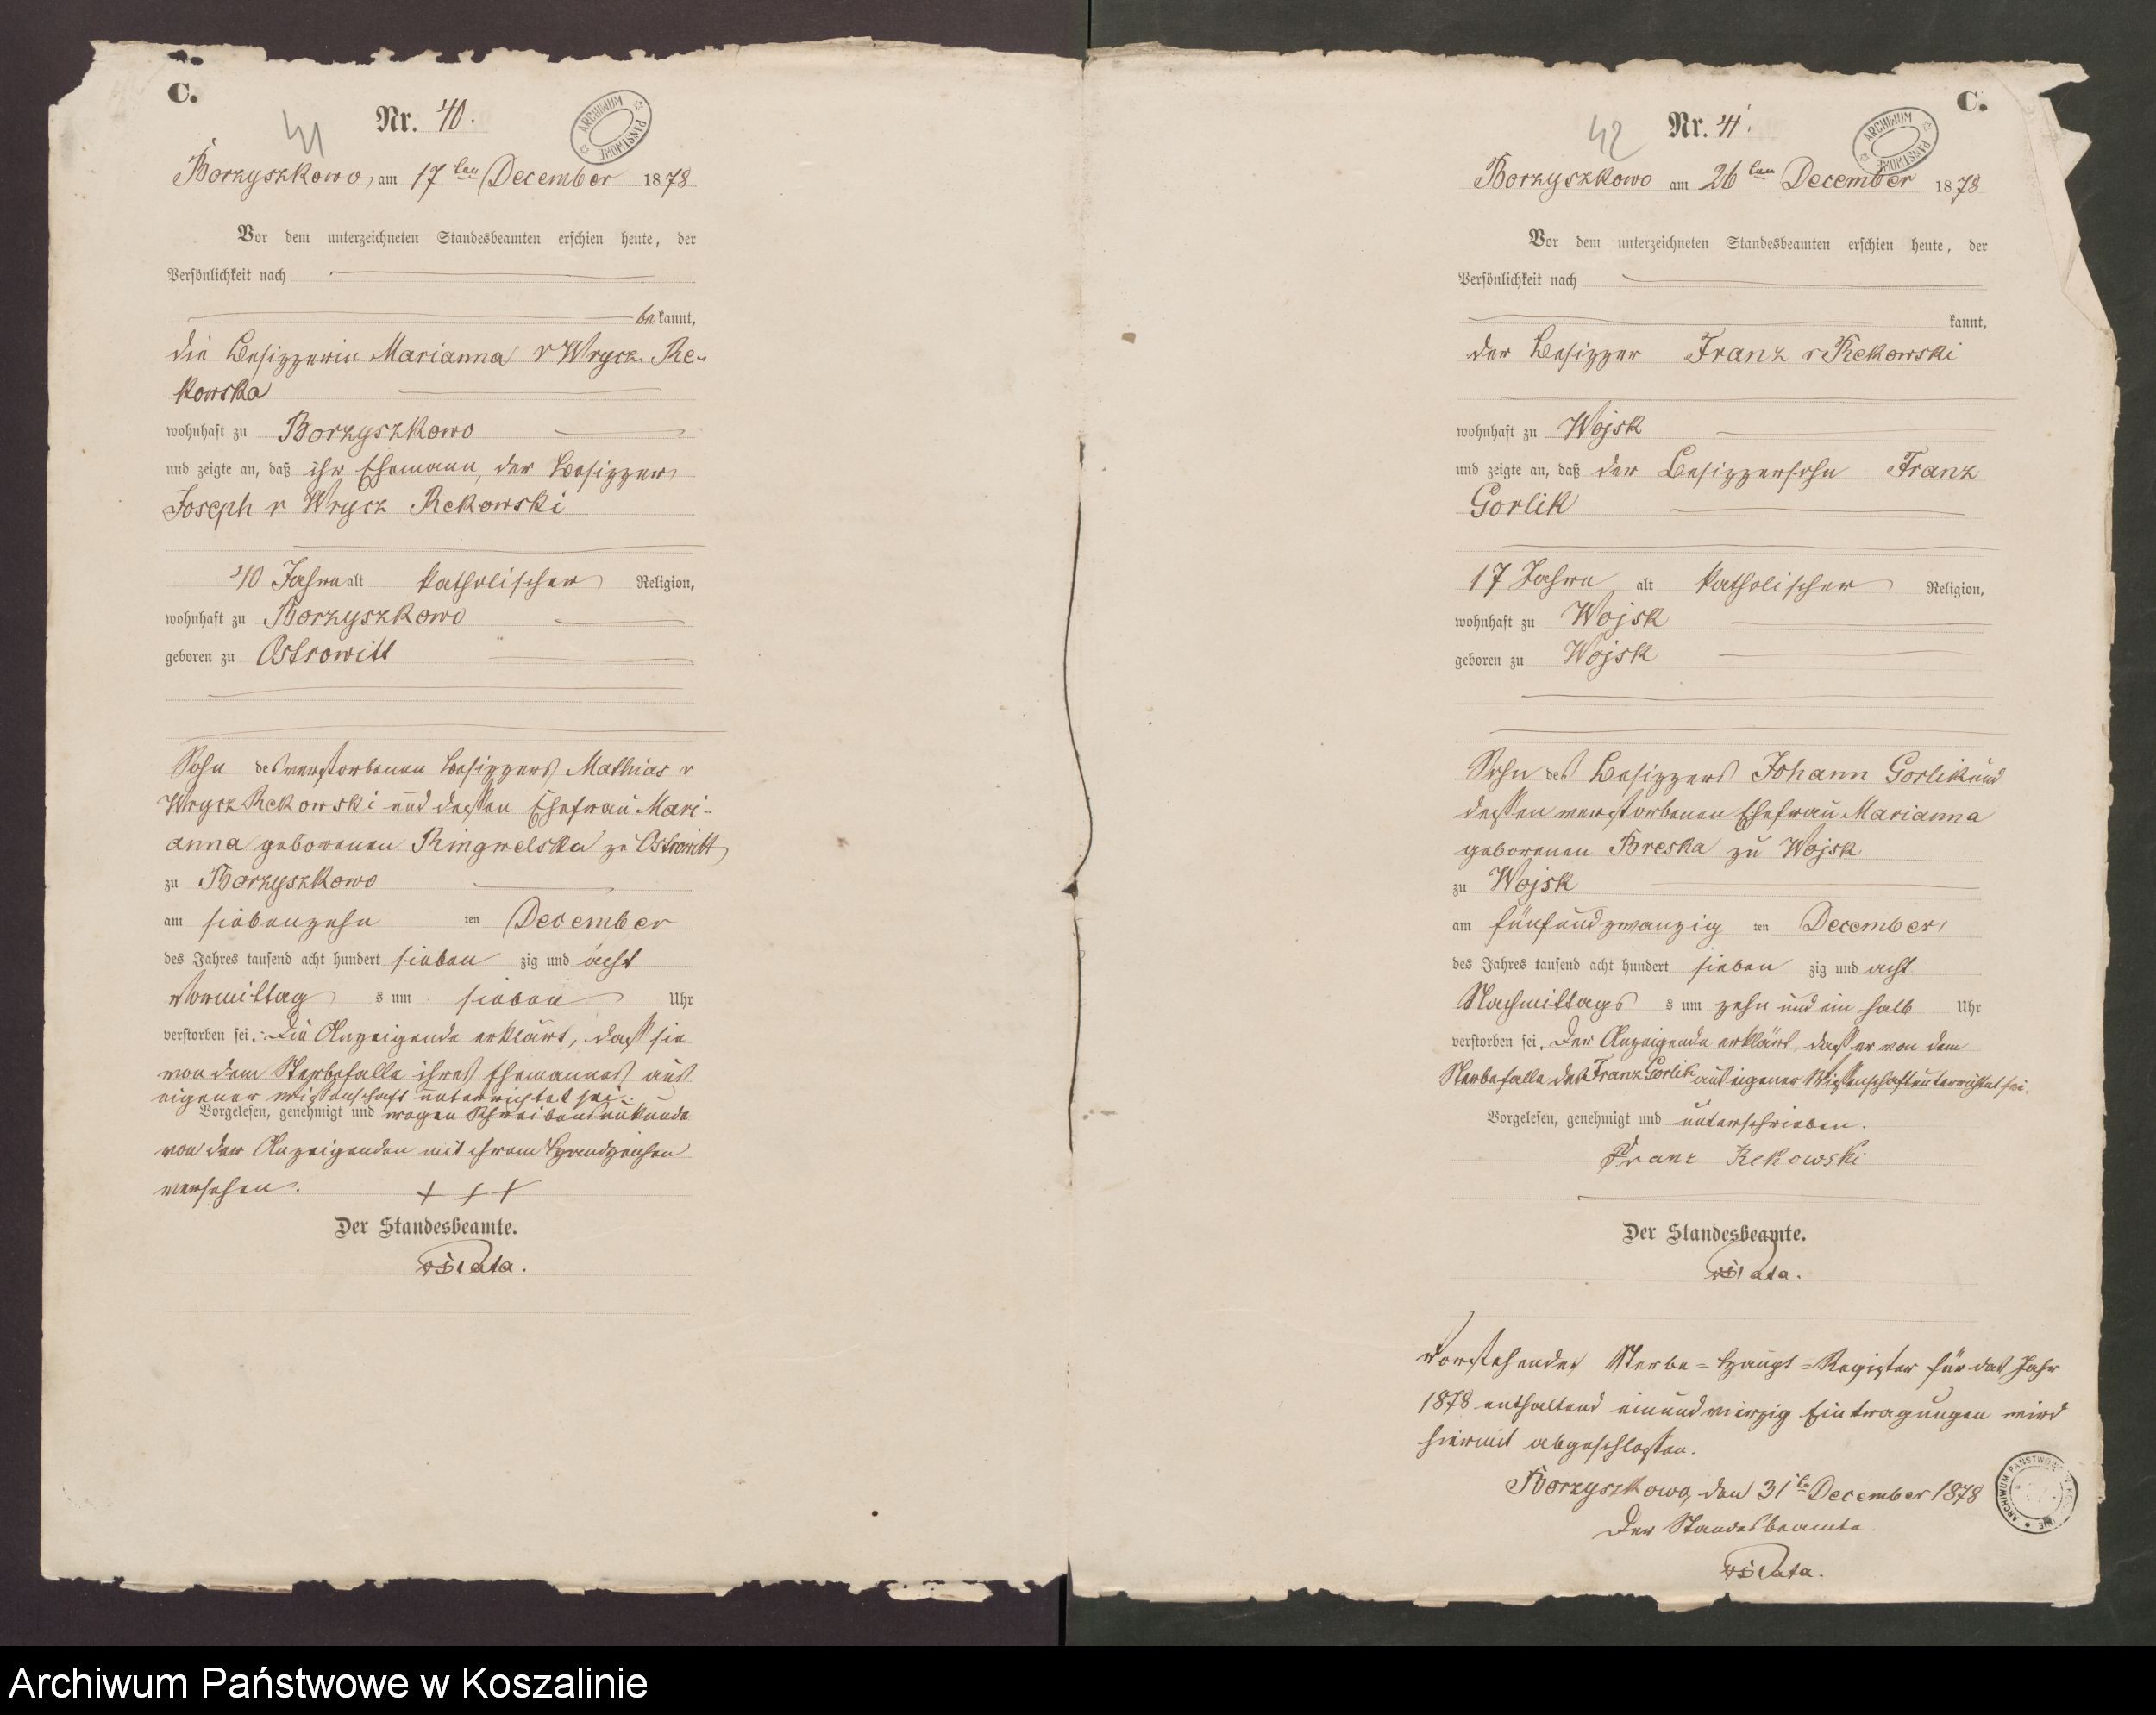 C.
41
Nr. 40.
ARCHIWUM PAŃSTWOWE
Borzyszkowo, am 17ten December 1878
Vor dem unterzeichneten Standesbeamten erschien heute, der
Persönlichkeit nach
bekannt,
die Besizzerin Marianna v Wrycz Re-
kowska
wohnhaft zu Borzyszkowo
und zeigte an, daß ihr Ehemann, der Besizzer
Joseph v Wrycz Rekowski
40 Jahre alt katholischer Religion,
wohnhaft zu Borzyszkowo
geboren zu Ostrowitt
Sohn des verstorbenen Besizzers Mathias v
Wrycz Rekowski und dessen Ehefrau Mari-
anna geborenen Ringwelska zu Ostrowitt
zu Borzyszkowo
am siebenzehn ten December
des Jahres tausend acht hundert sieben zig und acht
Vormittag s um sieben Uhr
verstorben sei. Die Anzeigende erklärt, dass sie
von dem Sterbefalle ihres Ehemannes aus
eigener Wissenschaft unterrichtet sei.
Vorgelesen, genehmigt und wegen Schreibensunkunde
von der Anzeigenden mit ihrem Handzeichen
versehen. + + +
Der Standesbeamte.
C.
42
Nr. 41.
ARCHIWUM PAŃSTWOWE
Borzyszkowo am 26ten December 1878
Vor dem unterzeichneten Standesbeamten erschien heute, der
Persönlichkeit nach
kannt,
der Besizzer Franz v Rekowski
wohnhaft zu Wojsk
und zeigte an, daß der Besizzersohn Franz
Gorlik
17 Jahre alt katholischer Religion,
wohnhaft zu Wojsk
geboren zu Wojsk
Sohn des Besizzers Johann Gorlik und
dessen verstorbenen Ehefrau Marianna
geborenen Breska zu Wojsk
zu Wojsk
am fünfundzwanzig ten December
des Jahres tausend acht hundert sieben zig und acht
Nachmittags s um zehn und ein halb Uhr
verstorben sei. Der Anzeigende erklärt, dass er von dem
Sterbefalle des Franz Gorlik aus eigener Wissenschaft unterrichtet sei.
Vorgelesen, genehmigt und unterschrieben.
Franz Rekowski
Der Standesbeamte.
Vorstehendes Sterbe-Haupt-Register für das Jahr
1878 enthaltend einundvierzig Eintragungen wird
hiermit abgeschlossen.
Borzyszkowo, den 31te December 1878
Der Standesbeamte.
Archiwum Państwowe w Koszalinie